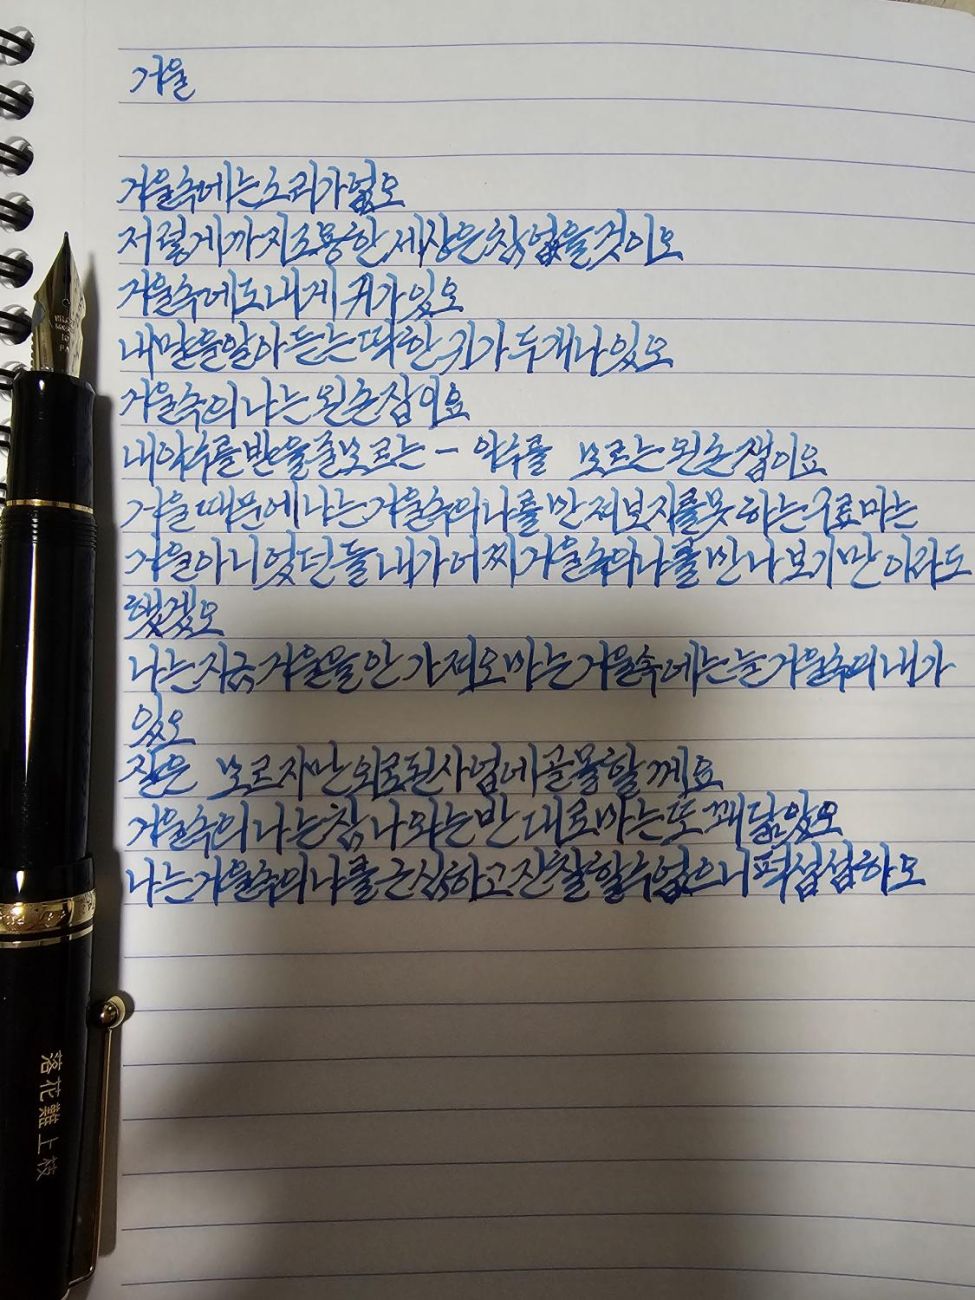 거울
거울속에는소리가없소
저렇게까지조용한세상은참없을것이오
거울속에도내게귀가있소
내말을못알아듣는딱한귀가두개나있소
거울속의나는왼손잡이요
내악수를받을줄모르는 — 악수를 모르는왼손잡이요
거울때문에나는거울속의나를만져보지를못하는구료마는
거울아니었던들내가어찌거울속의나를만나보기만이라도
했겠소
나는지금거울을안가져오마는거울속에는늘거울속의내가
있소
잘은 모르지만외로된사업에골몰할께요
거울속의나는참나와는반대로마는또꽤닮았소
나는거울속의나를근심하고진찰할수없으니퍽섭섭하오
落花難上枝